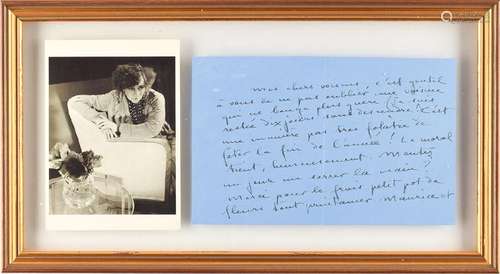 mes chers voisins, c'est gentil
à vous de ne pas oublier une voisine
qui ne bouge plus guère (je suis
restée dix jours sans descendre). C'est
une manière pas très folâtre de
fêter la fin de l'année! Le moral
tient, heureusement. Montez
un jour me serrer la main?
Merci pour le frais petit pot de
fleurs tout printanier. Maurice et